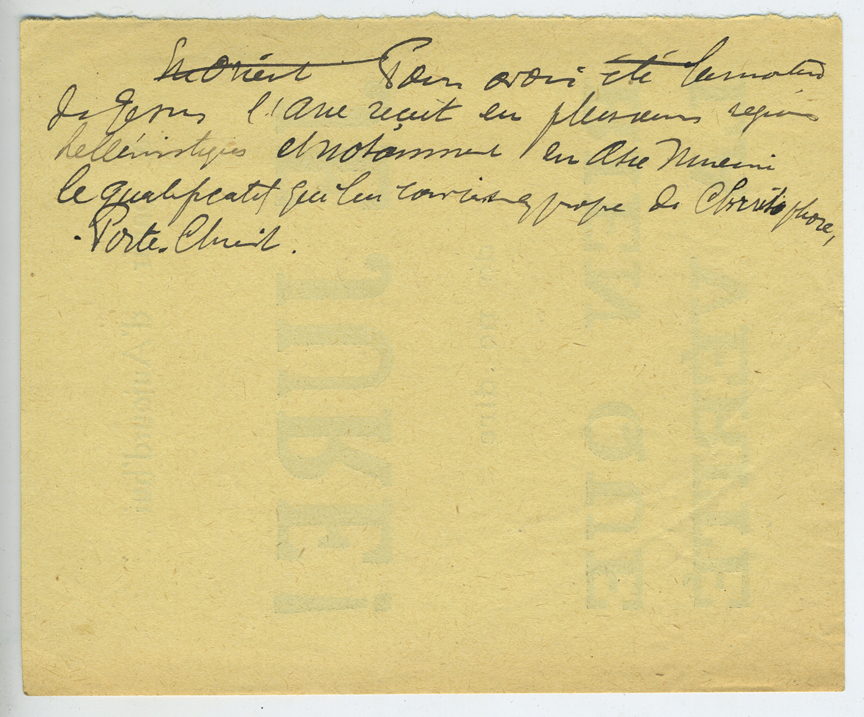 ~~En Orient~~ Pour avoir ~~été~~ la monture
de Jesus l'Ane reçut en plusieurs régions
hellénistiques et notamment en Asie Mineure
le qualificatif qui lui convient propre de Christophore,
Porte-Christ.